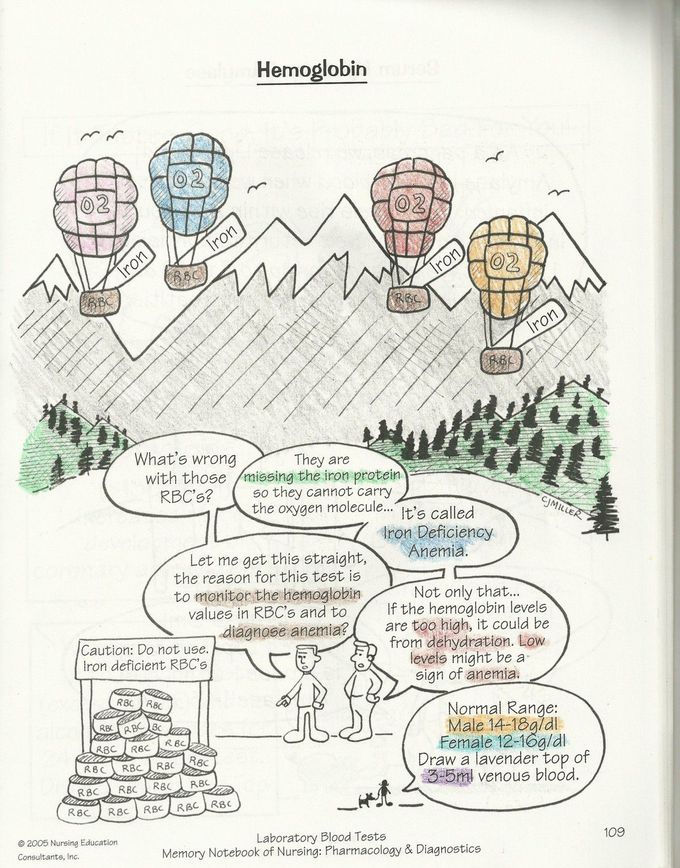 Hemoglobin
O2
O2
O2
O2
Iron
Iron
Iron
Iron
RBC
RBC
RBC
RBC
What's wrong
with those
RBC's?
They are
missing the iron protein
so they cannot carry
the oxygen molecule...
It's called
Iron Deficiency
Anemia.
CJMILLER
Let me get this straight,
the reason for this test is
to monitor the hemoglobin
values in RBC's and to
diagnose anemia?
Not only that...
If the hemoglobin levels
are too high, it could be
from dehydration. Low
levels might be a
sign of anemia.
Caution: Do not use.
Iron deficient RBC's
RBC RBC
RBC RBC BC
RBC RBC RBC
RBC RBC RBC RBC
RBC RBC RBC RBC
RBC RBC RBC RBC RBC
Normal Range:
Male 14-18g/dl
Female 12-16g/dl
Draw a lavender top of
3-5ml venous blood.
© 2005 Nursing Education
Consultants, Inc.
Laboratory Blood Tests
Memory Notebook of Nursing: Pharmacology & Diagnostics
109